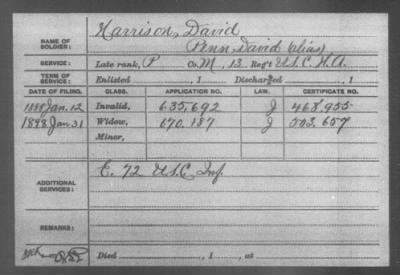 NAME OF SOLDIER: Harrison, David
Penn, David (alias)
SERVICE: Late rank, P Co. M, 13 Reg't U.S.C.H.A.
TERM OF SERVICE: Enlisted , 1 Discharged , 1
DATE OF FILING. CLASS. APPLICATION NO. LAW. CERTIFICATE NO.
1888 Jan. 12 Invalid, 635,692 J 468,955
1898 Jan 31 Widow, 670,187 J 503,657
Minor,
ADDITIONAL SERVICES: E. 72 U.S.C. Inf.
REMARKS:
Died , 1 , at